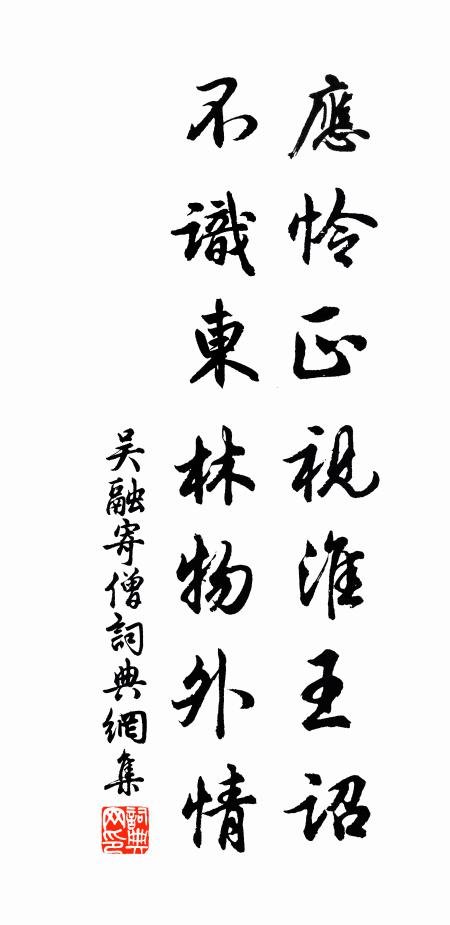 應怜正視淮王詔
不識東林物外情
吴融寄僧詞典網集
詞典網印